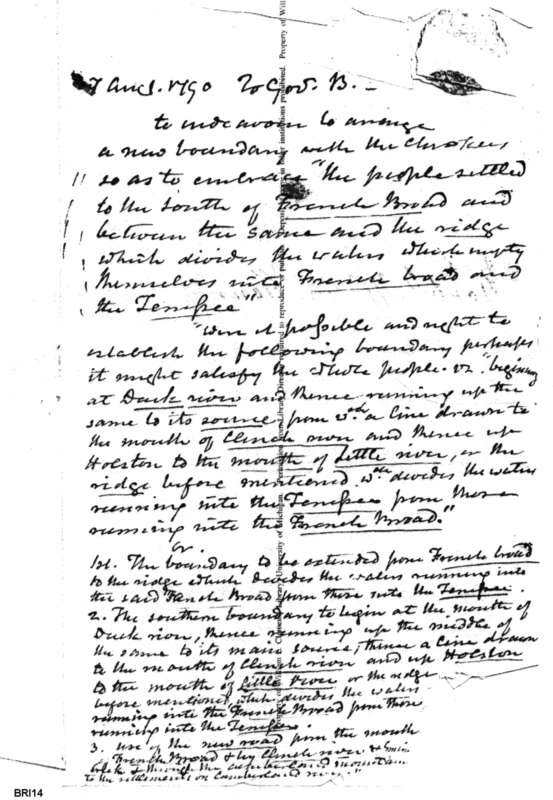 7 Aug. 1790 To Gov. B. –
to endeavour to arrange
a new boundary with the Cherokees
so as to embrace "the people settled
to the South of French Broad and
between the same and the ridge
which divides the waters which empty
themselves into French broad and
the Tenessee"
"were it possible and right to
establish the following boundary perhaps
it might satisfy the whole people. viz. "beginning
at Duck river and thence running up the
same to its source, from wch. a line drawn to
the mouth of Clinch river and thence up
Holston to the mouth of Little river, or the
ridge before mentioned wch. divides the waters
running into the Tenessee from those
running into the French Broad."
or.
1st. The boundary to be extended from French broad
to the ridge which divides the waters running into
the said French Broad from those into the Tenessee.
2. The southern boundary to begin at the mouth of
Duck river, thence running up the middle of
the same to its main source; thence a line drawn
to the mouth of Clinch river and up Holston
to the mouth of Little River or the ridge
before mentioned which divides the waters
running into the French Broad from those
running into the Tenessee.
3. use of the new road from the mouth
of French Broad & by Clinch river &
through the Cumberland mountain
to the settlements on Cumberland river."
Property of Will
BRI14